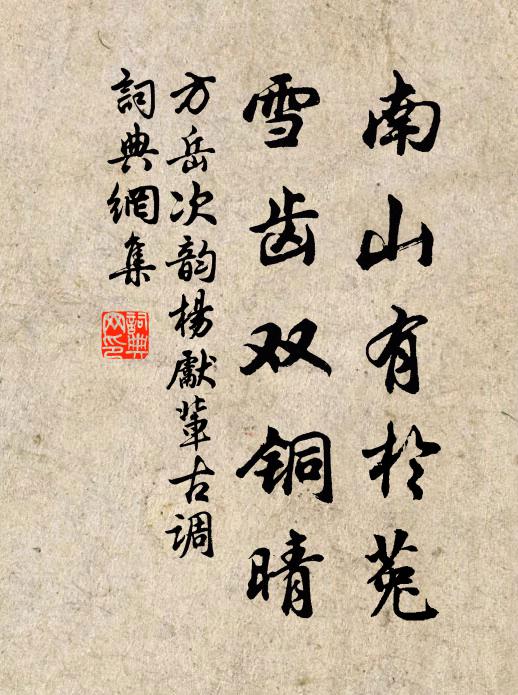 南山有於菟
雪齿双铜晴
方岳次韵楊獻軰古调
詞典網集
詞典
网印